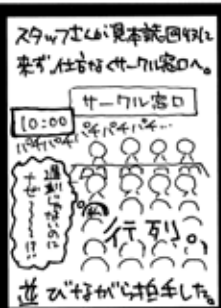 スタッフさんが見本誌回収に
来ず、仕方なくサークル窓口へ。
サークル窓口
10:00
パチパチパチパチ…
遅刻じゃないのに
ナゼ〜〜〜!?
行列。
並びながら拍手した。